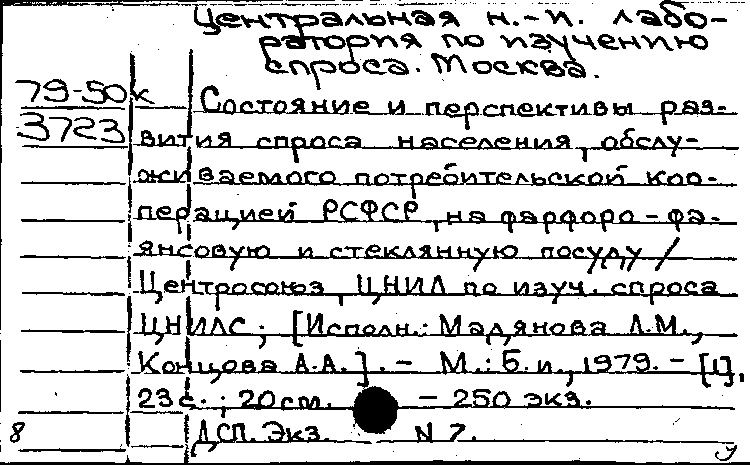 Центральная н.-и. лабо-
ратория по изучению
спроса. Москва.
79-50к Состояние и перспективы раз-
3723 вития спроса населения, обслу-
живаемого потребительской коо-
перацией РСФСР, на фарфоро-фа-
янсовую и стеклянную посуду /
Центросоюз, ЦНИЛ по изуч. спроса
ЦНИЛС; [Исполн.: Мадянова Л.М.,
Концова А.А.]. - М.: Б.и., 1979. - [1],
23 с.; 20 см. - 250 экз.
8 ДСП. Экз. N 7.
У